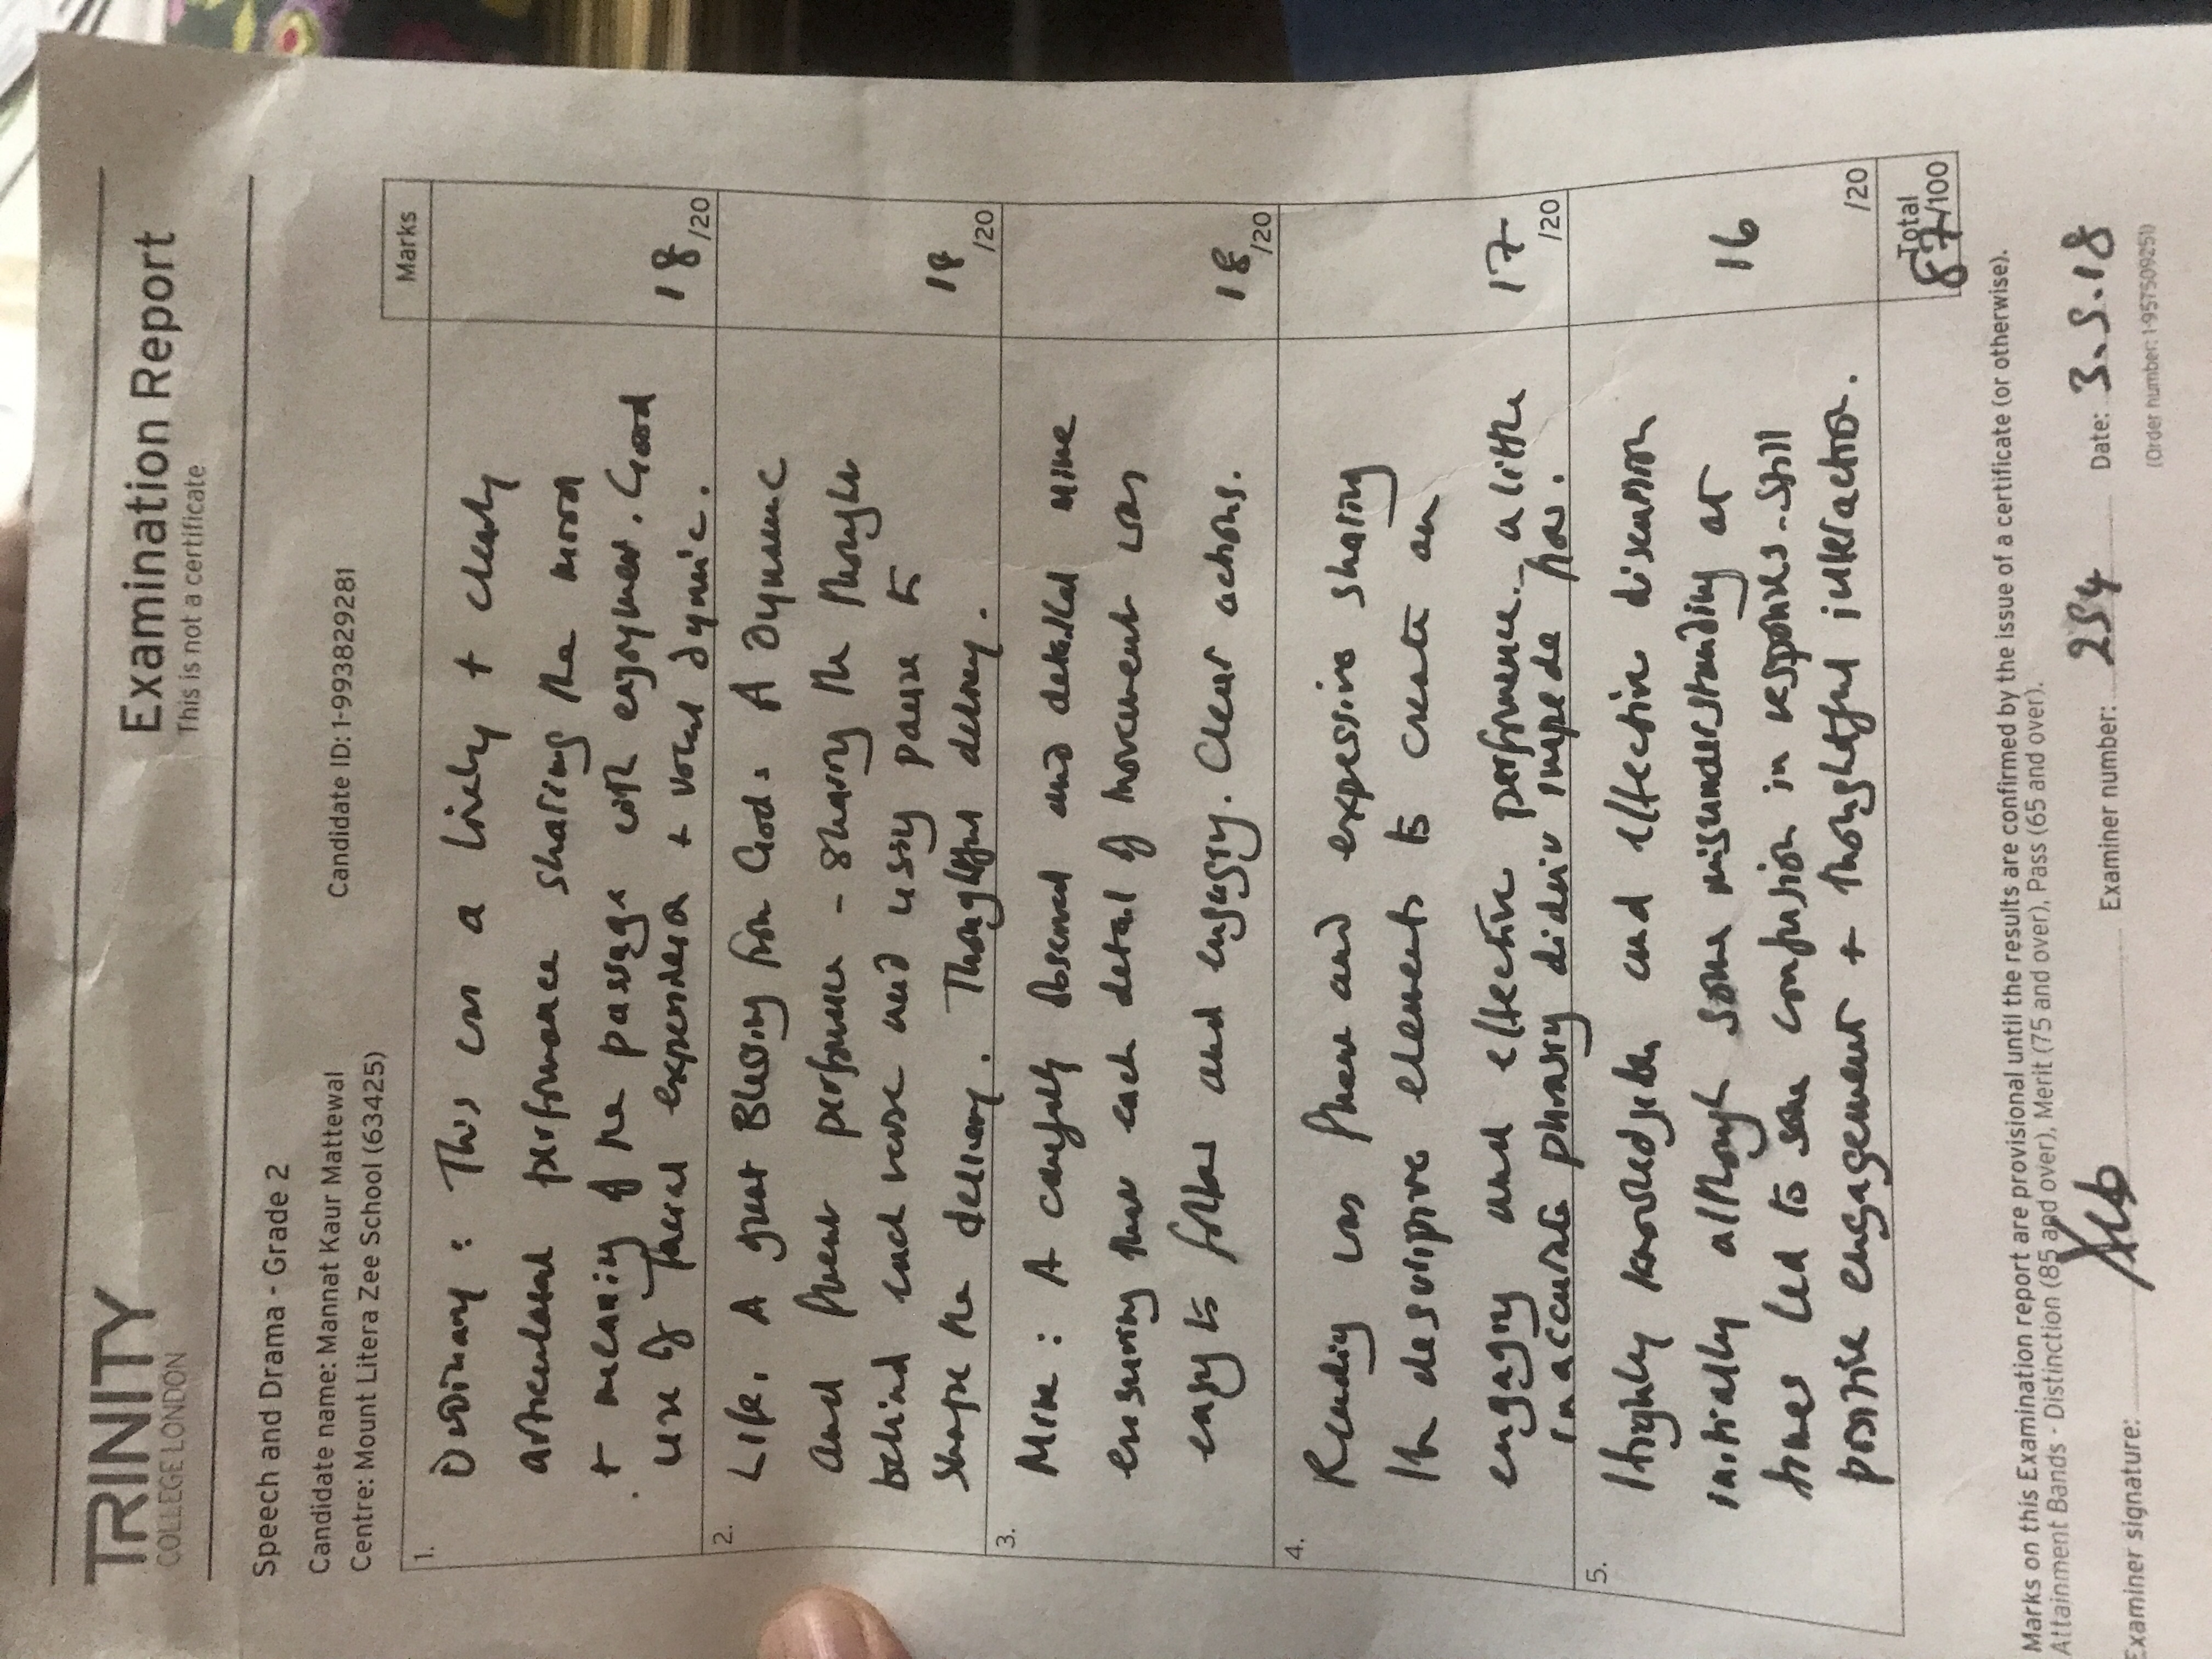 TRINITY
COLLEGE LONDON
Examination Report
This is not a certificate
Speech and Drama - Grade 2
Candidate name: Mannat Kaur Mattewal
Candidate ID: 1-9938829281
Centre: Mount Litera Zee School (63425)
Marks
1.
This was a lively + clearly
articulated performance sharing the mood
+ meaning of the passage with enjoyment. Good
use of facial expression + vocal dynamic.
18 /20
2.
Life. A great Blessing from God. A dynamic
and fluent performance - sharing the thought
behind each verse and using pause to
shape the delivery. Thoughtful delivery.
18 /20
3.
Mime: A carefully observed and detailed mime
ensuring that each detail of movement was
easy to follow and engaging. Clear actions.
18 /20
4.
Reading was fluent and expressive sharing
the descriptive elements to create an
engaging and effective performance - a little
inaccurate phrasing didn't impede flow.
17 /20
5.
Highly knowledgable and effective discussion
initially although some misunderstanding at
times led to some confusion in responses - still
positive engagement + thoughtful interaction.
16 /20
Total
87/100
Marks on this Examination report are provisional until the results are confirmed by the issue of a certificate (or otherwise).
Attainment Bands - Distinction (85 and over), Merit (75 and over), Pass (65 and over).
Examiner signature:
Examiner number: 254
Date: 3.5.18
(Order number: 1-957509251)